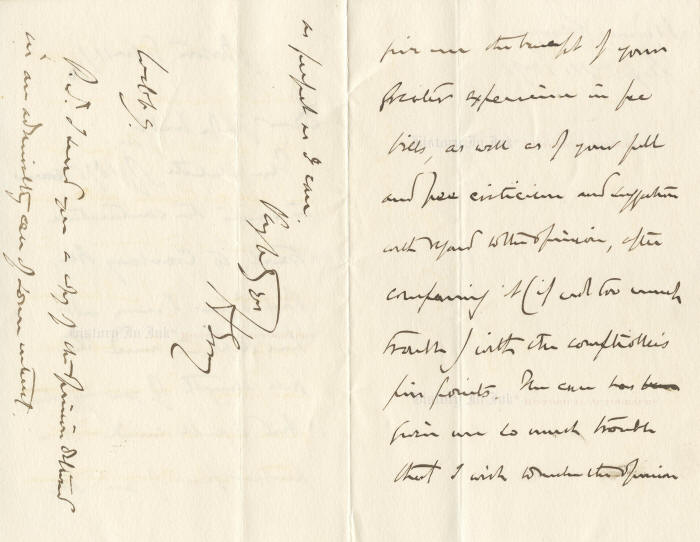 give me the benefit of your
greater experience in fee
bills, as well as of your full
and free criticism and suggestion
with regard to the opinion, after
comparing it (if not too much
trouble) with the comptroller's
five points. The case has been
given me so much trouble
that I wish to make the opinion
as perfect as I can
P.S. I send you a copy of the opinion
in an admiralty case of some interest.
History In Ink